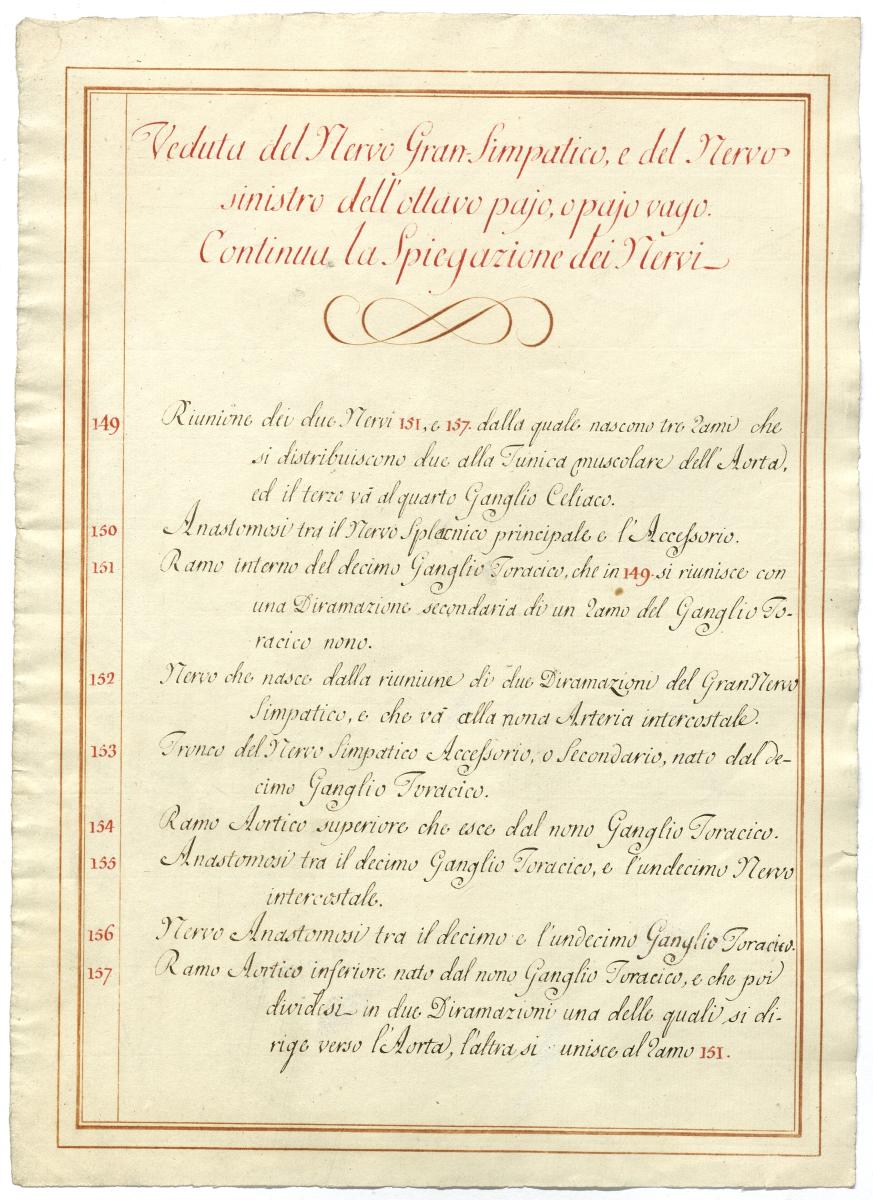 Veduta del Nervo Gran-Simpatico, e del Nervo
sinistro dell'ottavo pajo, o pajo vago.
Continua la Spiegazione dei Nervi
149 Riunione dei due Nervi 151, e 157. dalla quale nascono tre Rami che
si distribuiscono due alla Tunica muscolare dell'Aorta,
ed il terzo và al quarto Ganglio Celiaco.
150 Anastomosi tra il Nervo Splacnico principale e l'Accessorio.
151 Ramo interno del decimo Ganglio Toracico, che in 149. si riunisce con
una Diramazione secondaria di un Ramo del Ganglio To-
racico nono.
152 Nervo che nasce dalla riuniune di due Diramazioni del Gran Nervo
Simpatico, e che và alla nona Arteria intercostale.
153 Tronco del Nervo Simpatico Accessorio, o Secondario, nato dal de-
cimo Ganglio Toracico.
154 Ramo Aortico superiore che esce dal nono Ganglio Toracico.
155 Anastomosi tra il decimo Ganglio Toracico, e l'undecimo Nervo
intercostale.
156 Nervo Anastomosi tra il decimo e l'undecimo Ganglio Toracico.
157 Ramo Aortico inferiore nato dal nono Ganglio Toracico, e che poi
dividesi in due Diramazioni una delle quali si di-
rige verso l'Aorta, l'altra si unisce al Ramo 151.